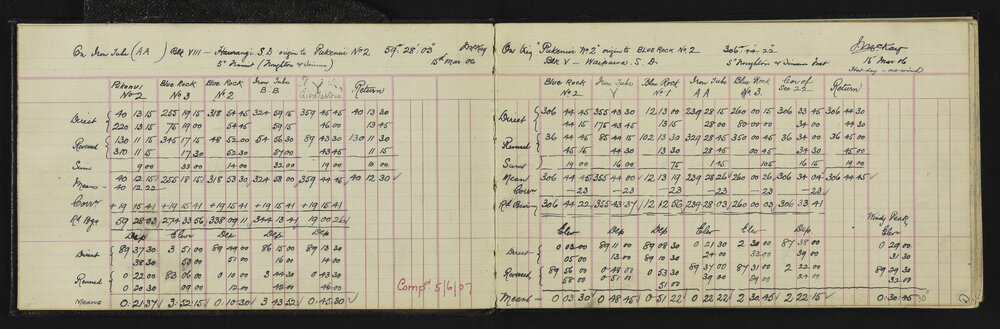 On Iron Tube (AA) Blk VIII – Haurangi S.D origin to Pukenui No 2 59° 28' 03" J McKay
5" Transit (Troughton & Simms) 15th Mar 06
Pukenui No 2 Blue Rock No 3 Blue Rock No 2 Iron Tube B.B Y Return
Direct 40 13 15 255 19 15 318 54 45 324 59 15 359 45 45 40 13 30
220 13 15 75 19 00 54 45 59 15 46 00 13 45
Revsed 130 11 15 345 17 15 48 52 00 54 56 30 89 43 30 130 11 30
310 11 15 17 30 52 30 57 00 43 45 11 15
Sum 9 00 33 00 14 00 32 00 19 00 10 00
Mean 40 12 15 255 18 15 318 53 30 324 58 00 359 44 45 40 12 30
40 12 22
Corrn +19 15 41 +19 15 41 +19 15 41 +19 15 41 +19 15 41
Rd Bgs 59 28 03 274 33 56 338 09 11 344 13 41 19 00 26
Dep Elev Dep Dep Dep
Direct 89 37 30 3 51 00 89 49 00 86 15 00 89 13 30
38 30 50 00 51 00 16 00 14 00
Revsed 0 22 00 83 06 00 0 10 00 3 44 30 0 43 30
0 20 30 09 00 12 00 40 00 46 00
Means 0.21.37 3.52.15 0.10.30 3.43.52 0.45.30
Compd 5/6/07
On Trig "Pukenui No 2" origin to Blue Rock No 2 306° 44' 22" J McKay
Blk V – Waipawa S.D. 5" Troughton & Simms Inst 15 Mar 06
Hot day – no wind
Blue Rock No 2 Iron Tube Y Blue Rock No 1 Iron Tube AA Blue Rock No 3. Cor of Sec 22 Return
Direct 306 44 45 355 43 30 12 13 00 239 28 15 260 00 15 306 33 45 306 44 30
44 45 175 43 45 13 15 28 00 80 00 00 34 00 44 30
Revsed 36 44 45 85 44 15 102 13 30 329 28 45 350 00 45 36 34 00 36 45 00
45 15 44 30 13 30 28 45 00 45 34 30 45 00
Sum 19 00 16 00 75 145 105 16 15 19 00
Mean 306 44 45 355 44 00 12 13 19 239 28 26 260 00 26 306 34 04 306 44 45
Corrn –23 –23 –23 –23 –23 –23
Rd Bear 306 44 22 355 43 37 12 12 56 239 28 03 260 00 03 306 33 41
Windy Peak
Elev Dep Dep Elev Elev Dep Elev
Direct 0 03 00 89 11 00 89 08 30 0 21 30 2 30 00 87 38 00 0 29 00
05 00 13 00 10 30 24 00 33 00 39 00 31 30
Revsed 89 56 00 0 48 00 0 53 30 89 37 00 87 31 00 2 22 00 89 29 30
58 00 0 51 00 51 00 39 00 29 00 24 00 32 00
Means – 0 03 30 0 48 45 0 51 22 0 22 22 2 30 45 2 22 15 0 30 45